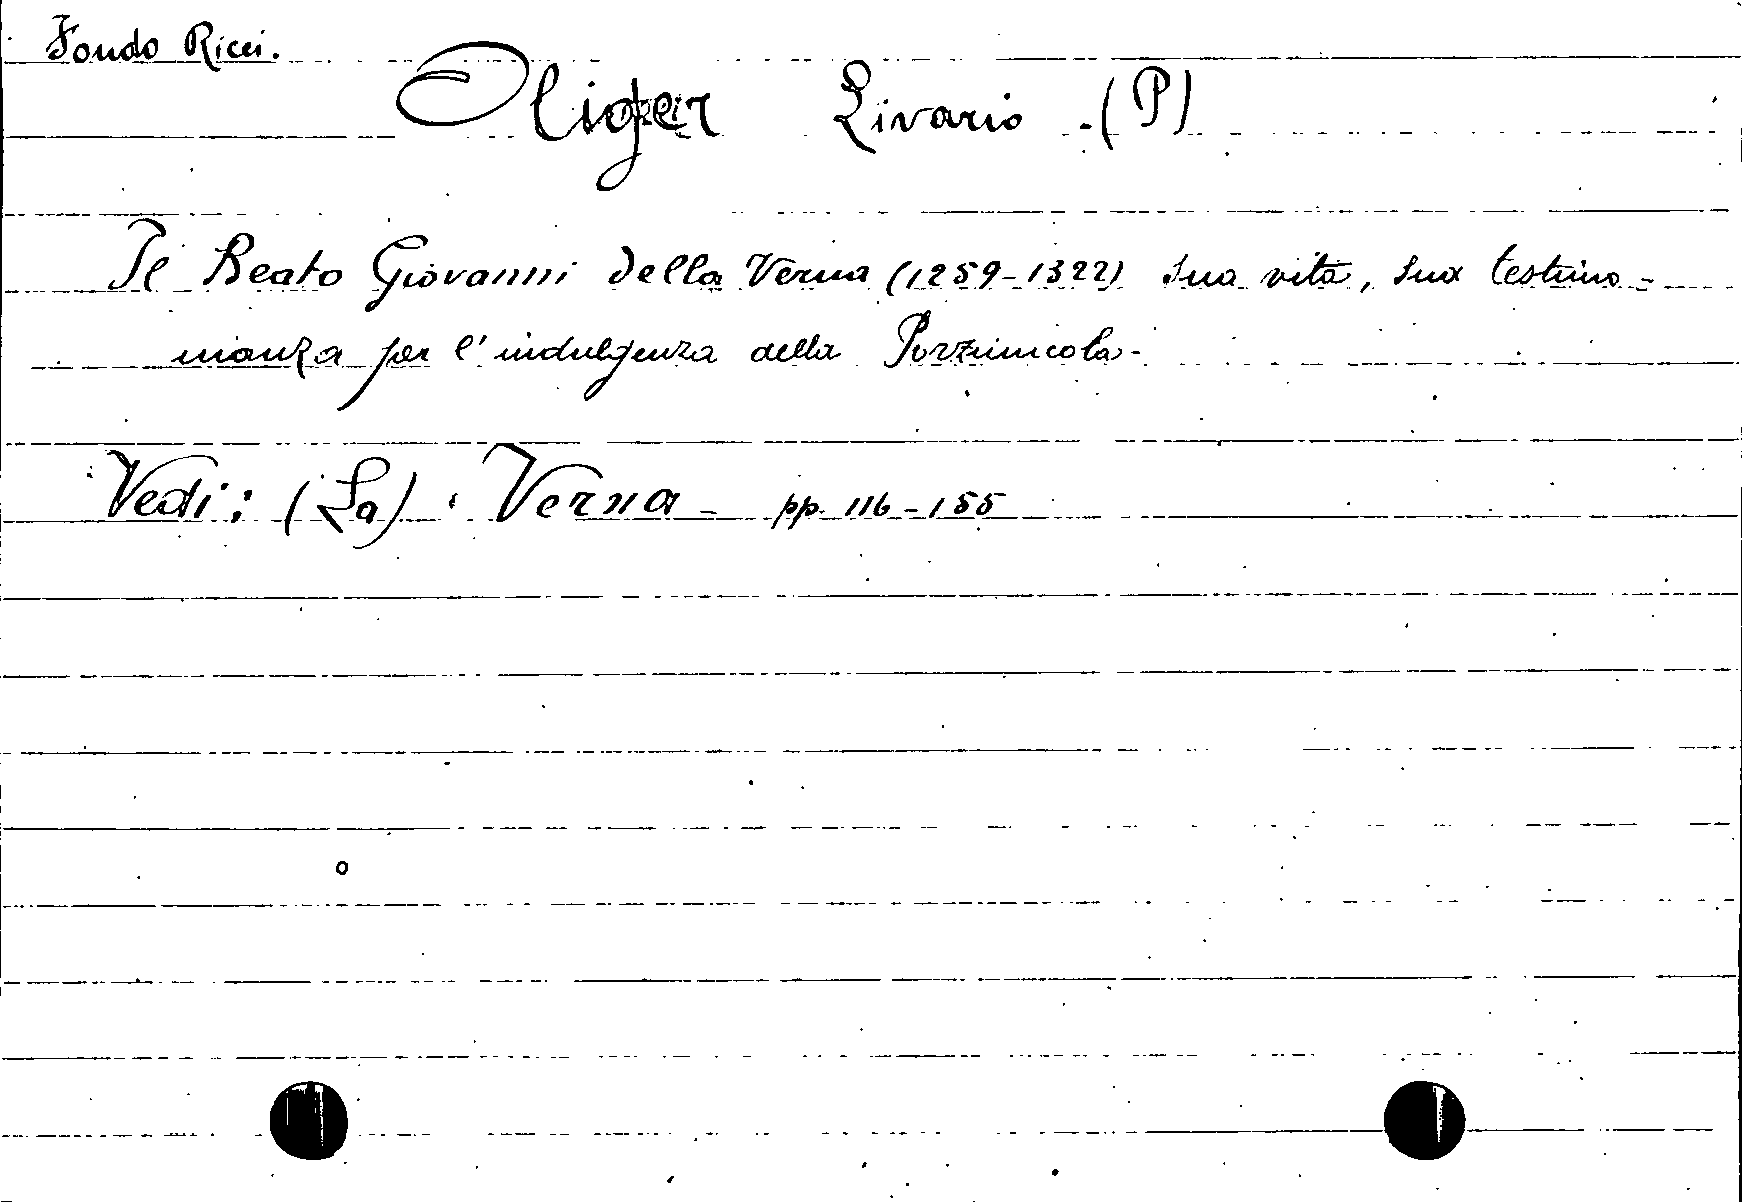 Fondo Ricci.
Oliger Livario - (P)
Il Beato Giovanni della Verna (1259-1322) sua vita, sua testimo-
nianza per l'indulgenza della Porziuncola -
Vedi: (La) Verna - pp. 116-155